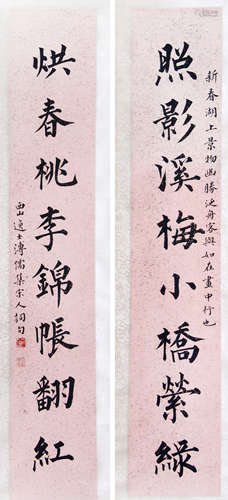 新春湖上景物幽勝泛舟容與如在畫中行也
照影溪梅小橋縈綠
烘春桃李錦帳翻紅
西山逸士溥儒集宋人詞句